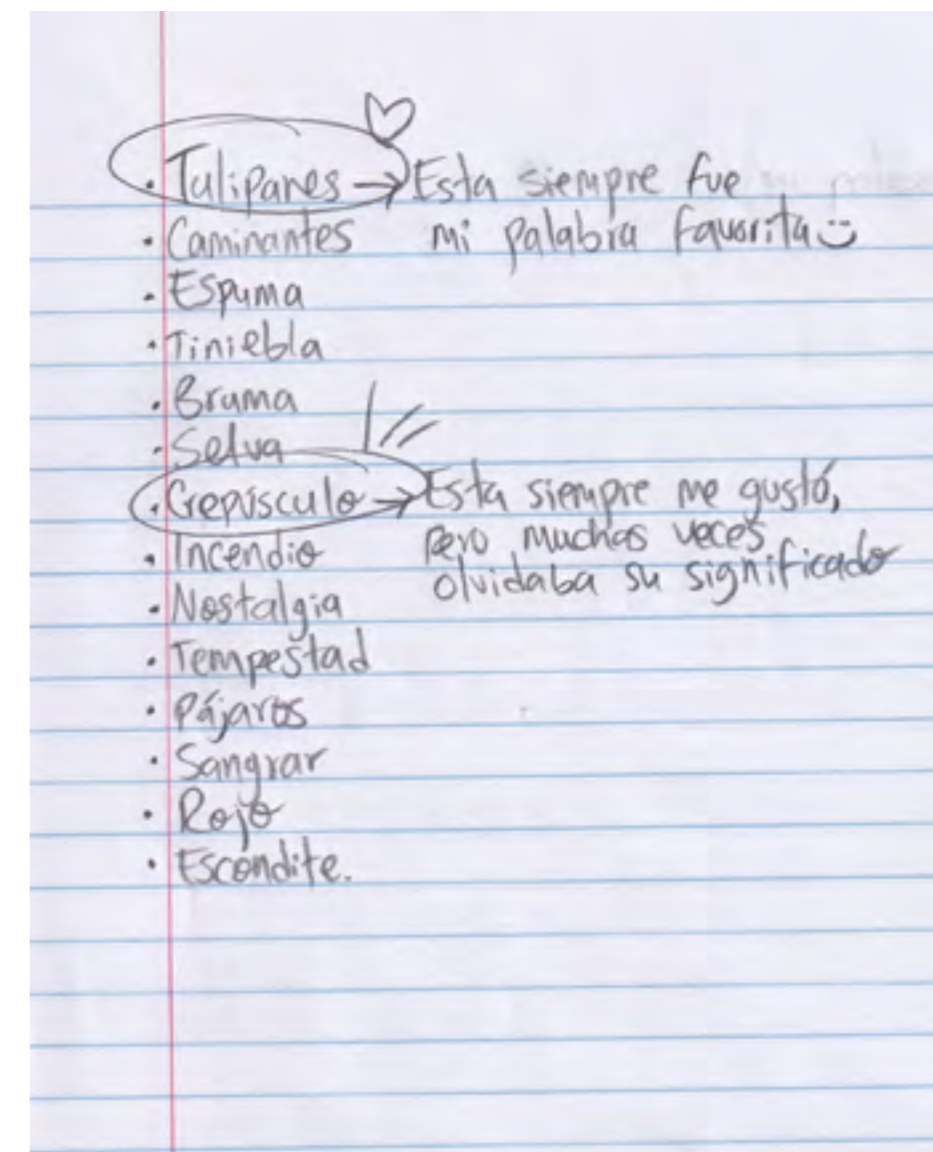 · Tulipanes → Esta siempre fue
· Caminantes mi palabra favorita
· Espuma
· Tiniebla
· Bruma
· Selva
· Crepúsculo → Esta siempre me gustó,
· Incendio pero muchas veces
olvidaba su significado
· Nostalgia
· Tempestad
· Pájaros
· Sangrar
· Rojo
· Escondite.